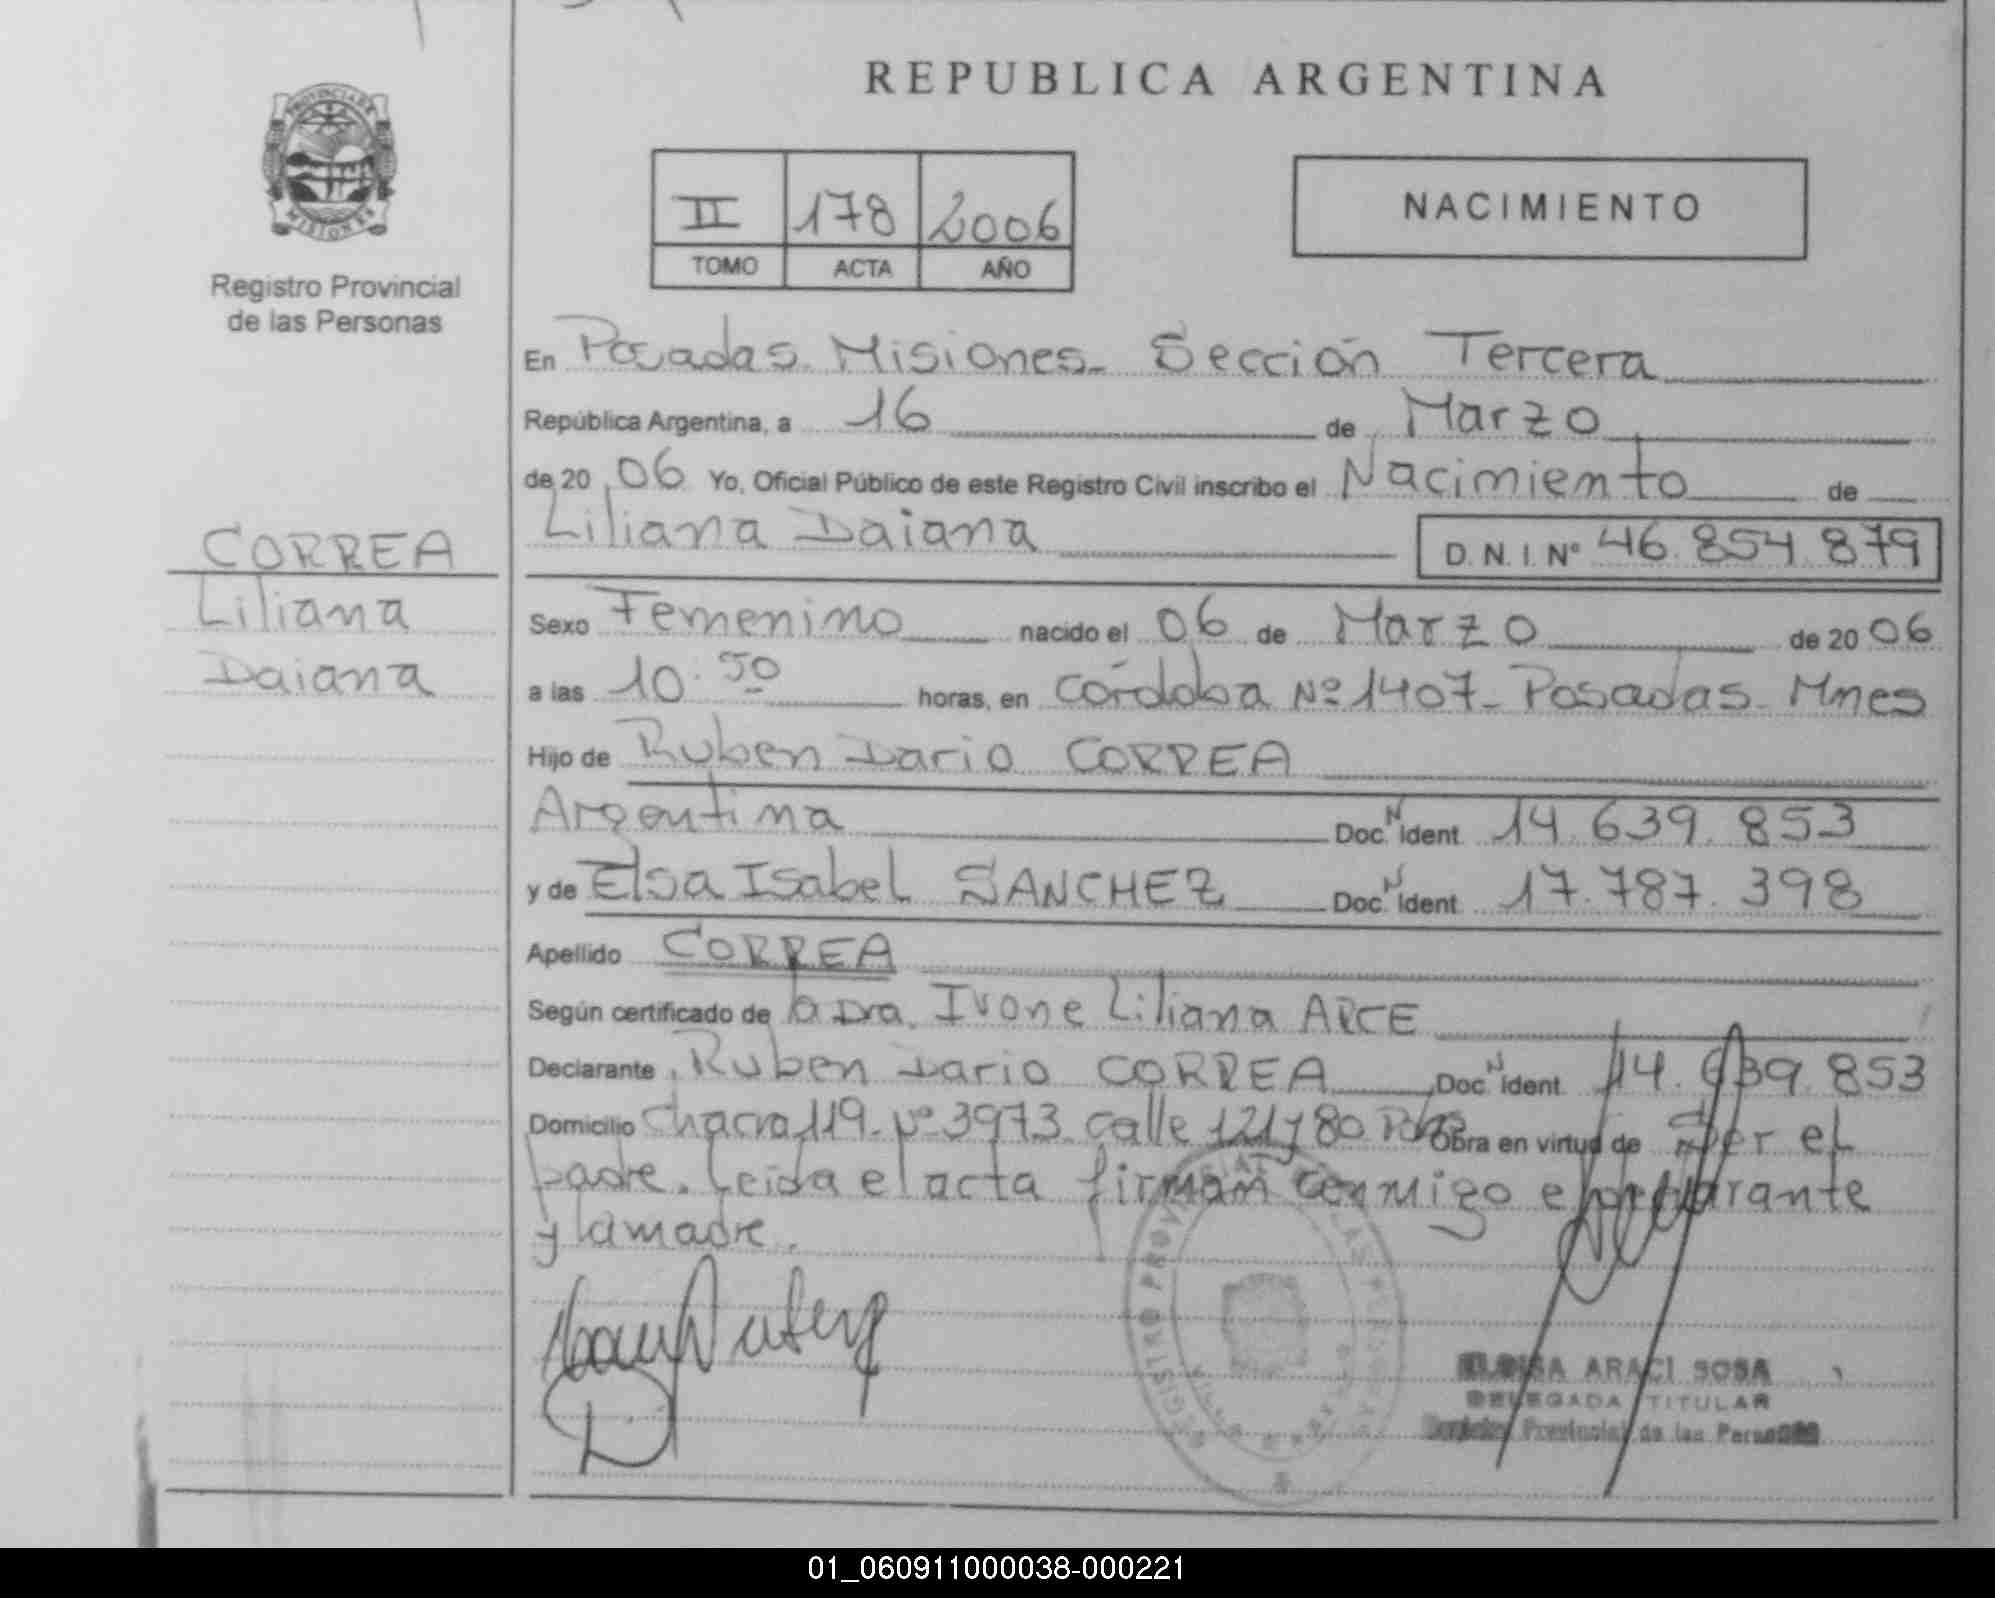 PROVINCIA DE
MISIONES
Registro Provincial
de las Personas
CORREA
Liliana
Daiana
REPUBLICA ARGENTINA
II 178 2006
TOMO ACTA AÑO
NACIMIENTO
En Posadas Misiones- Sección Tercera
República Argentina, a 16 de Marzo
de 20 06 Yo, Oficial Público de este Registro Civil inscribo el Nacimiento de
Liliana Daiana D.N.I. Nº 46.854.879
Sexo Femenino nacido el 06 de Marzo de 20 06
a las 10:50 horas, en Córdoba Nº 1407- Posadas- Mnes
Hijo de Ruben Dario CORREA
Argentina Doc. N Ident. 14.639.853
y de Elsa Isabel SANCHEZ Doc. N Ident. 17.787.398
Apellido CORREA
Según certificado de la Dra. Ivone Liliana ARCE
Declarante Ruben Dario CORREA Doc. N Ident. 14.639.853
Domicilio Chacra 119- Nº 3973 calle 121 y 80 Obra en virtud de ser el
padre. Leida el acta firman conmigo el declarante
y la madre.
REGISTRO PROVINCIAL DE LAS PERSONAS
ELOISA ARACI SOSA
DELEGADA TITULAR
Registro Provincial de las Personas
01_060911000038-000221